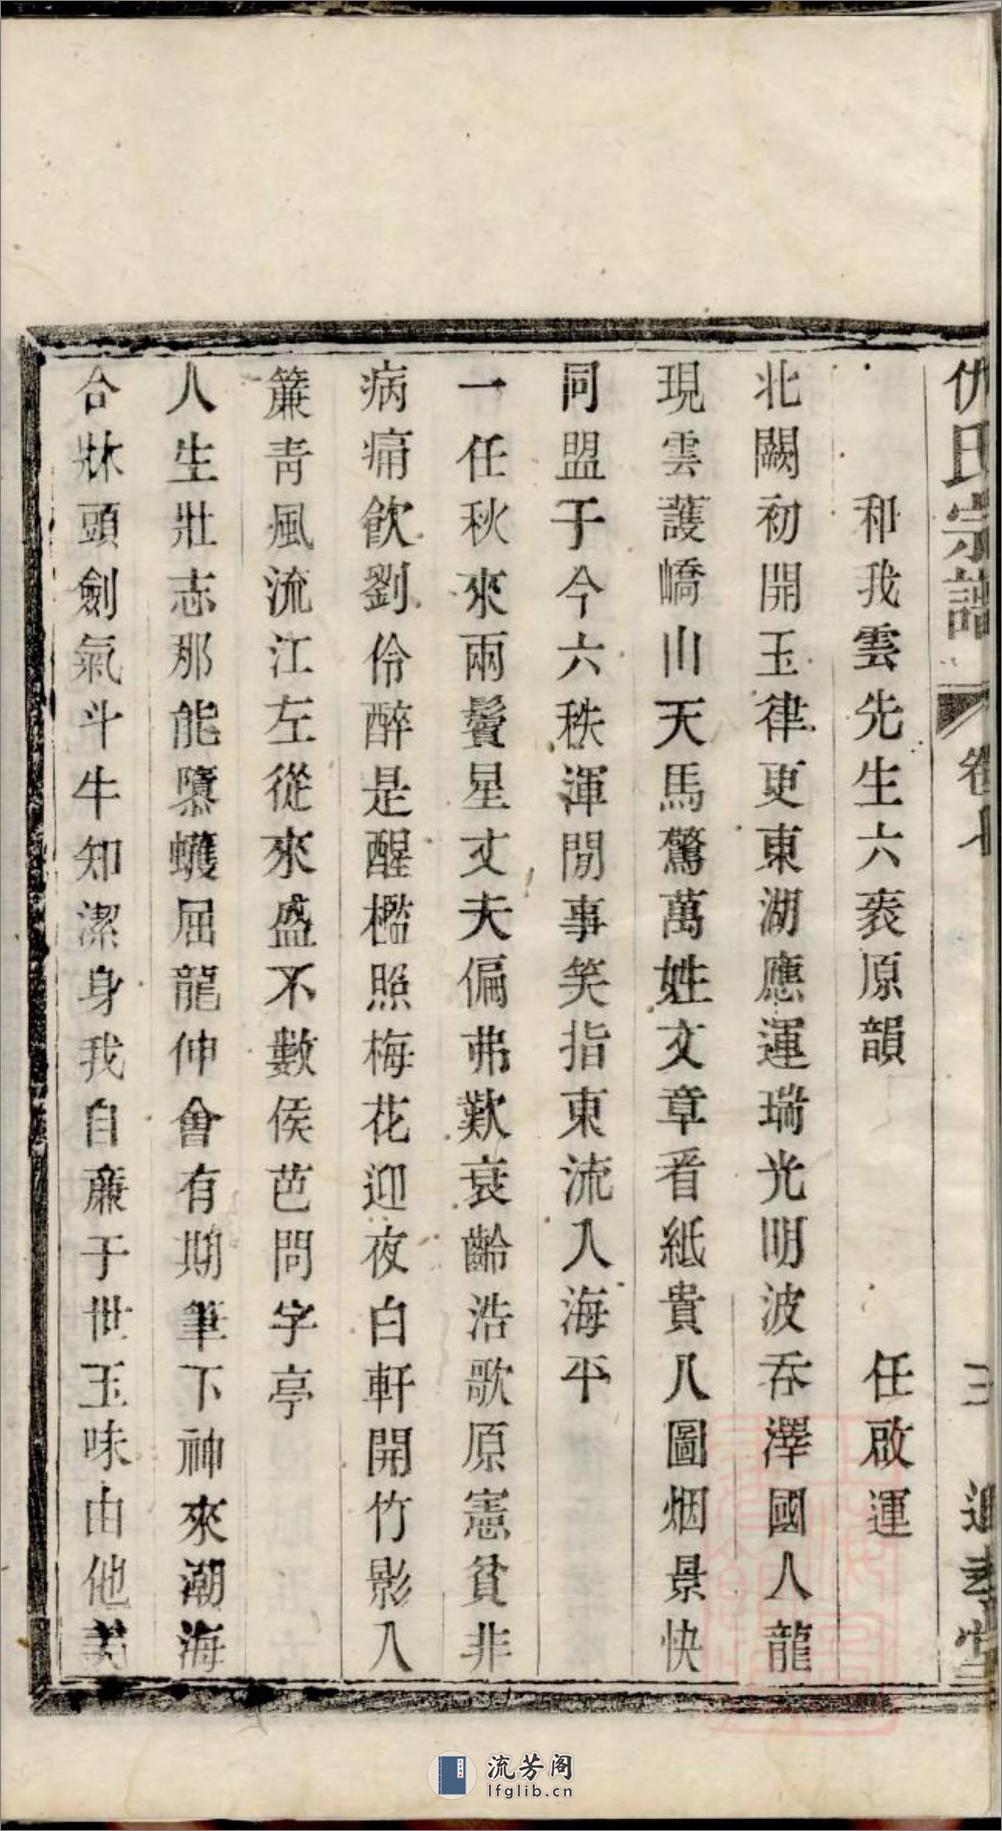 仇氏宗譜 卷七 三
和我雲先生六袠原韻 任啟運
北闕初開玉律更東湖應運瑞光明波吞澤國人龍
現雲護嶠山天馬驚萬姓文章看紙貴八圖烟景快
同盟于今六秩渾閒事笑指東流入海平
一任秋來兩鬢星丈夫偏弗歎衰齡浩歌原憲貧非
病痛飮劉伶醉是醒檻照梅花迎夜白軒開竹影入
簾青風流江左從來盛不數侯芭問字亭
人生壯志那能隳蠖屈龍伸會有期筆下神來潮海
合牀頭劍氣斗牛知潔身我自廉于世玉味由他美
流芳阁
lfglib.cn